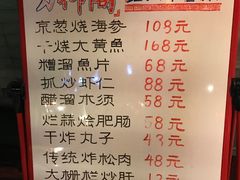 京葱烧海参 108元
干烧大黄鱼 168元
糟溜鱼片 68元
抓炒虾仁 88元
醋溜木须 58元
烂蒜烩肥肠 58元
干炸丸子 43元
传统炸松肉 48元
大栅栏炒肝